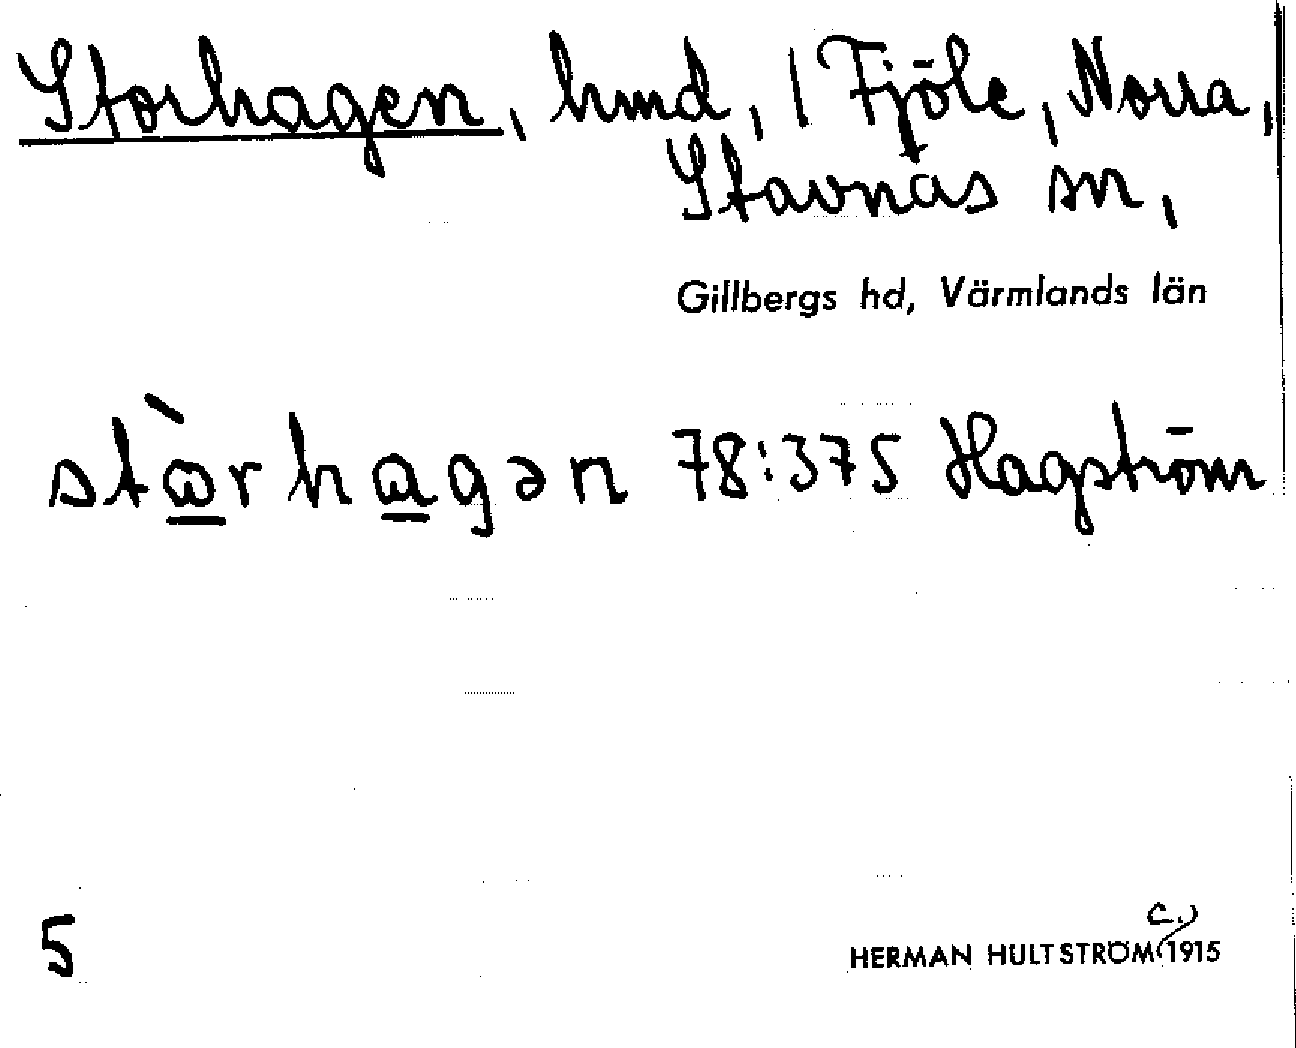 Storhagen, hmd, 1 Fjöle, Norra,
Stavnäs sn,
Gillbergs hd, Värmlands län
stàrhagən 78:375 Hagström
5
c.)
HERMAN HULTSTRÖM 1915